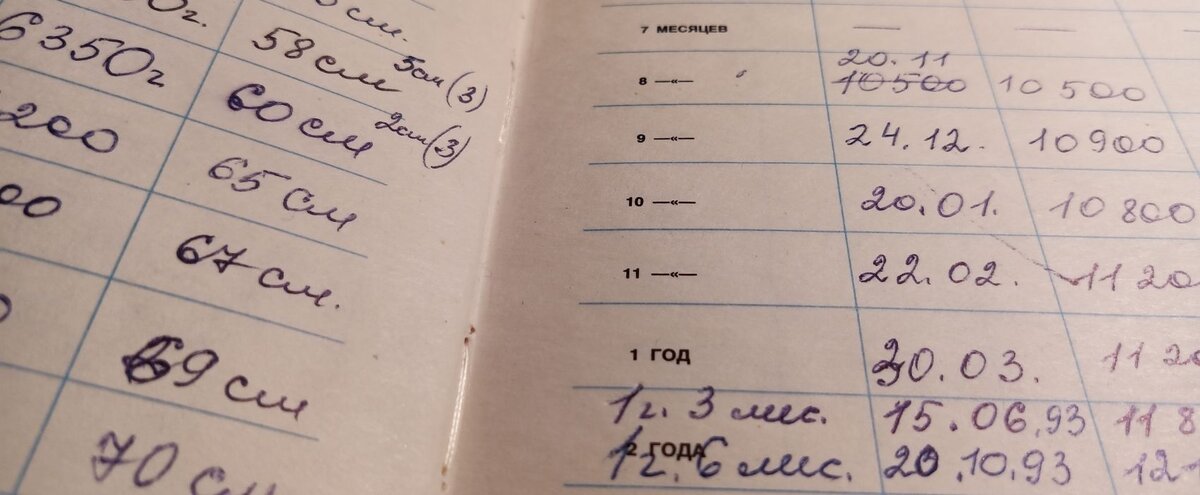 см.
6350г 58 см 5см (3)
200 60 см 2см (3)
00 65 см
67 см.
69 см
70 см
7 МЕСЯЦЕВ — —
20.11
8 —«— 10500 10 500
9 —«— 24.12. 10 900
10 —«— 20.01. 10 800
11 —«— 22.02. 11 20
1 ГОД 30.03. 11 20
1г. 3 мес. 15.06.93 11 8
2 ГОДА
1г. 6 мес. 20.10.93 12